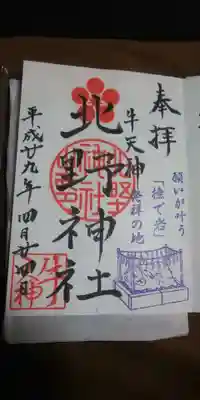 奉拝
願いが叶う
「撫で岩」
牛天神
発祥の地
北野神社
平成廿九年四月廿四日
牛天神